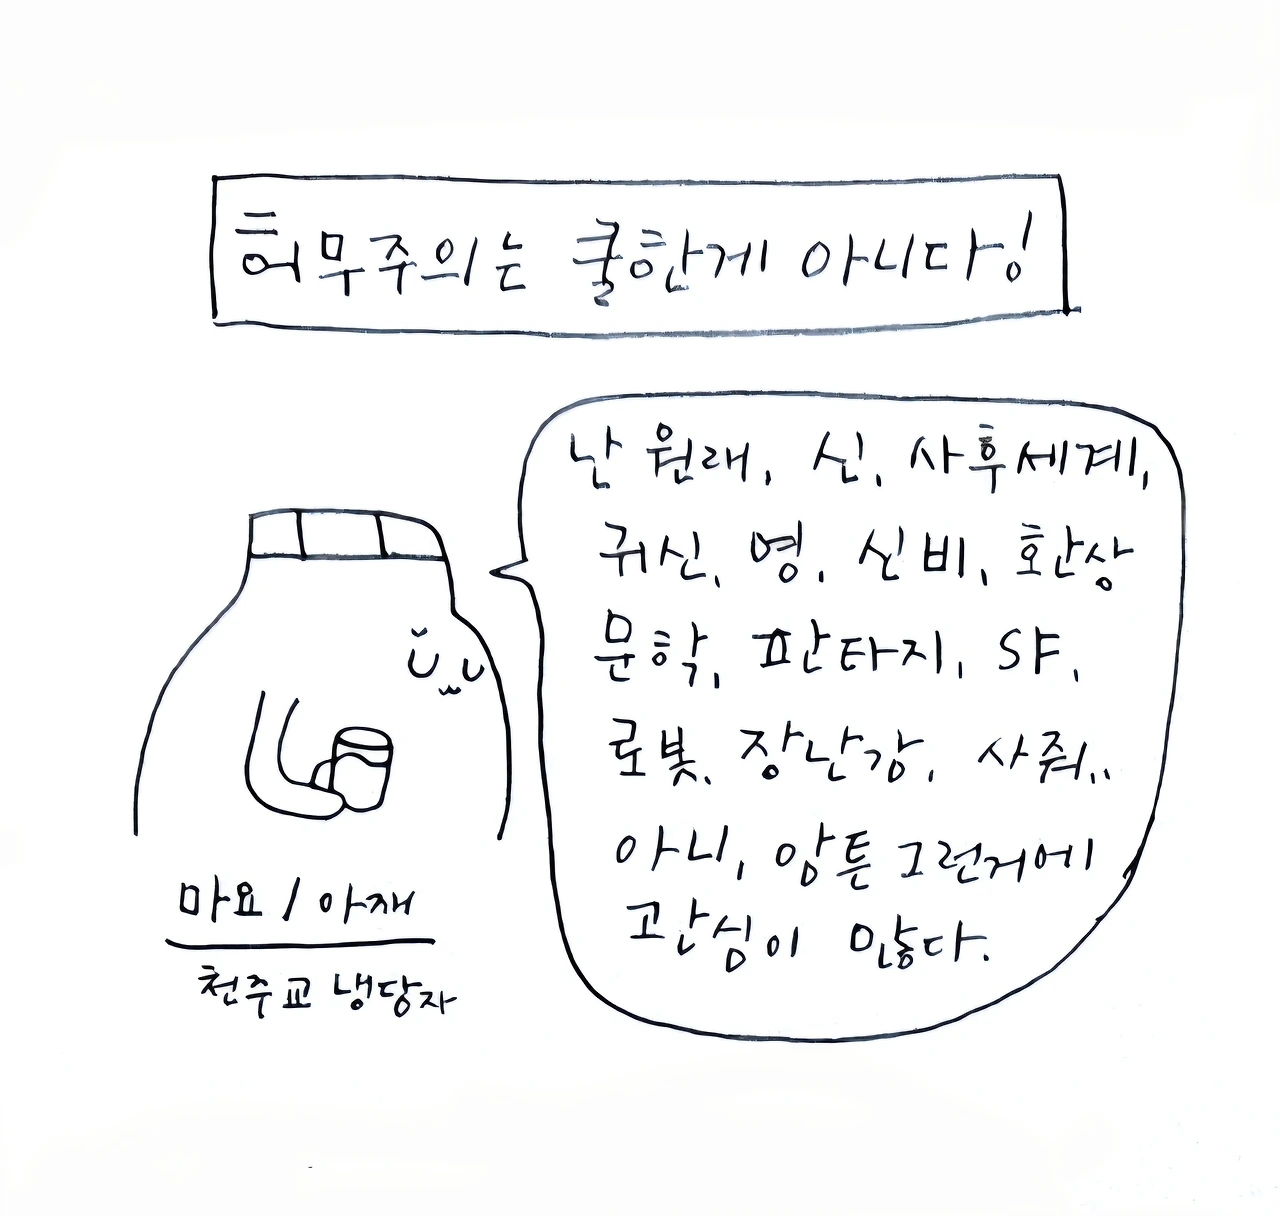 허무주의는 쿨한게 아니다!
난 원래, 신, 사후세계,
귀신, 영, 신비, 환상
문학, 판타지, SF,
로봇, 장난감, 사줘..
아니, 암튼 그런거에
관심이 많다.
마요 / 아재
천주교 냉담자